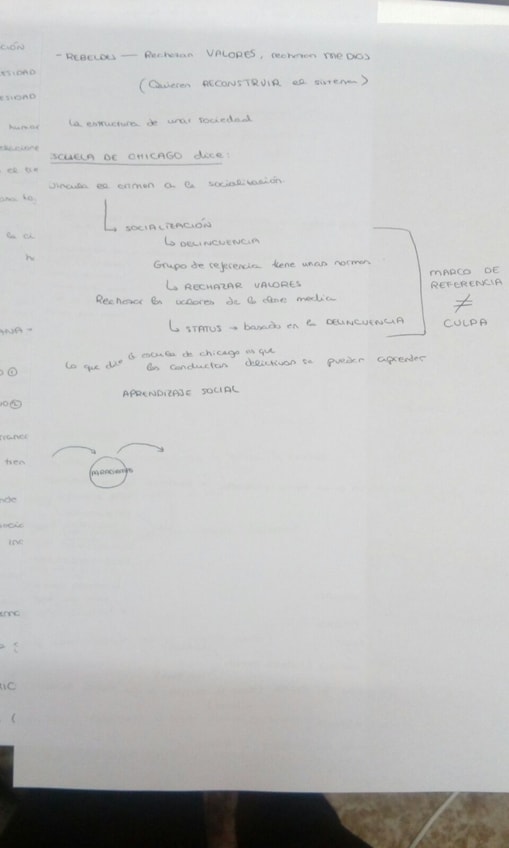 CIÓN
ESIDAD
ESIDAD
humor
- REBELDES — Rechazan VALORES, rechazan MEDIOS
(Quieren RECONSTRUIR el sistema)
la estructura de una sociedad
ESCUELA DE CHICAGO dice:
vincula el crimen a la socialización
SOCIALIZACIÓN
DELINCUENCIA
Grupo de referencia tiene unas normas
RECHAZAR VALORES
Rechazar los valores de la clase media
STATUS → basado en la DELINCUENCIA
MARCO DE
REFERENCIA
≠
CULPA
Lo que dice la escuela de chicago es que
las conductas delictivas se pueden aprender
APRENDIZAJE SOCIAL